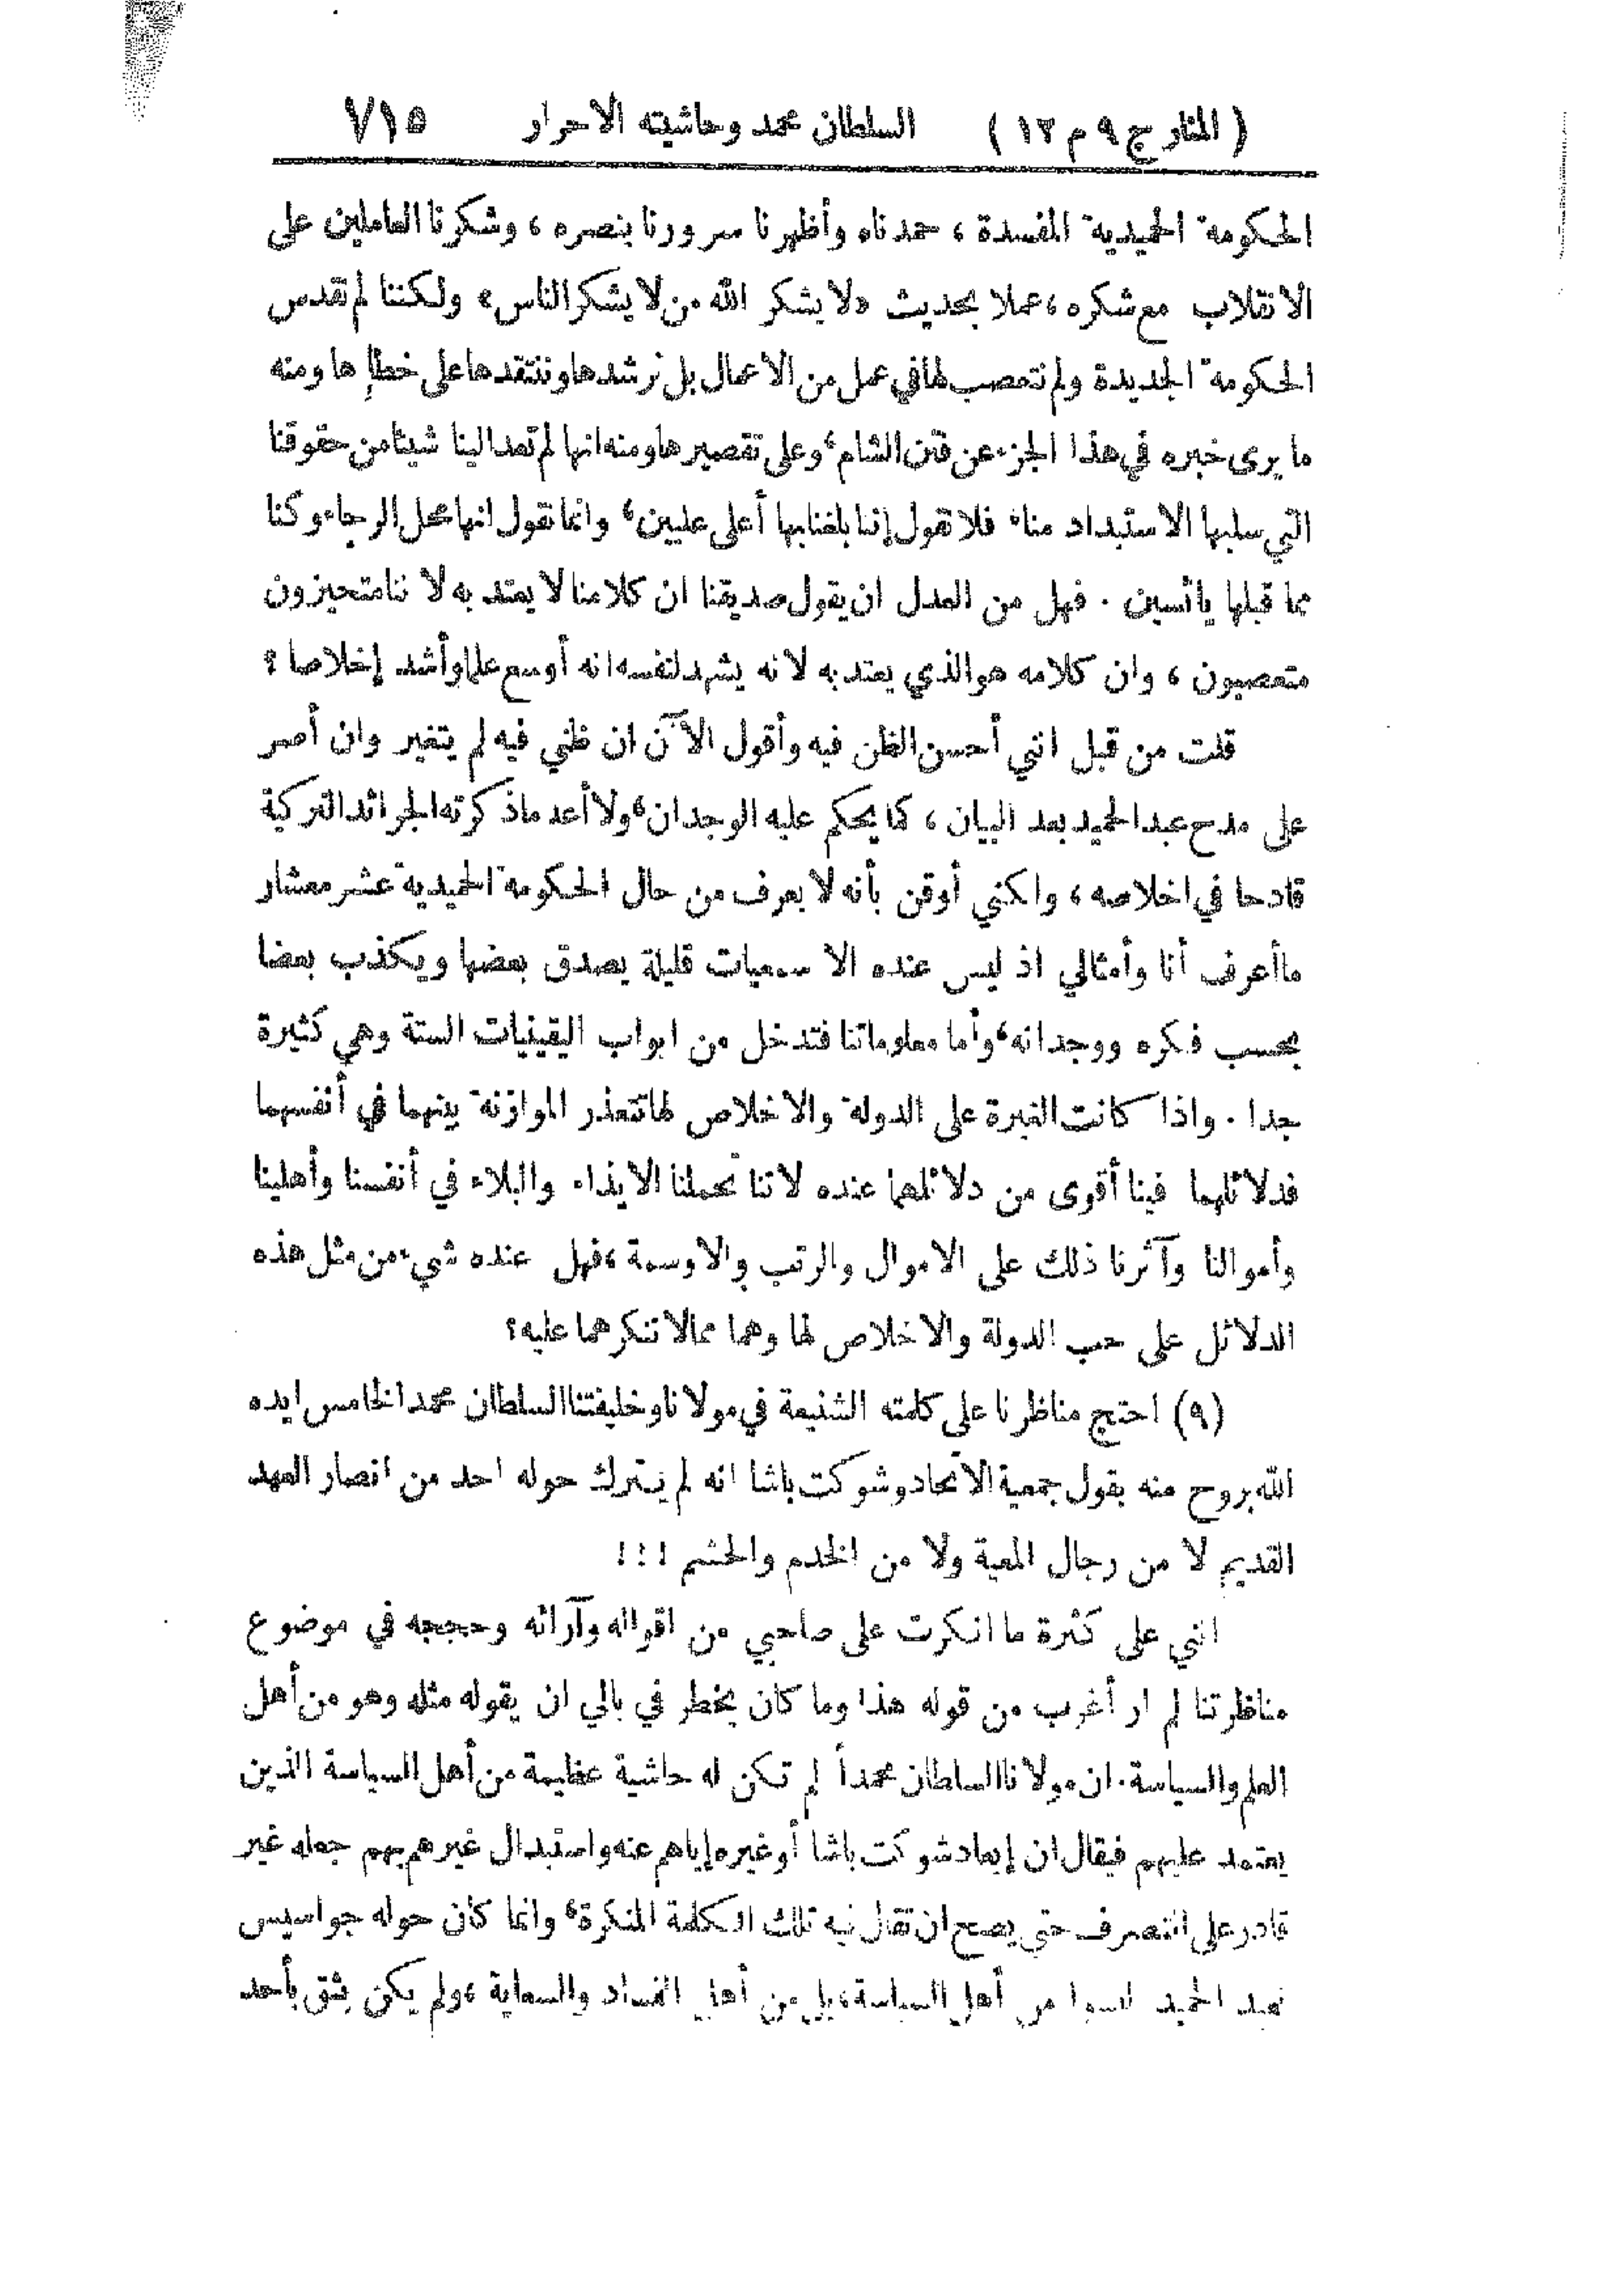 ( المنار ج ٩ م ١٢ ) السلطان محمد وحاشيته الاحرار ٧١٥
الحكومة الحميدية المفسدة ، حمدناه وأظهرنا سرورنا بنصره ، وشكرنا العاملين على
الانقلاب مع شكره ، عملا بحديث «لا يشكر الله من لا يشكر الناس» ولكننا لم نقدس
الحكومة الجديدة ولم نتعصب لها في عمل من الاعمال بل نرشدها وننتقدها على خطإِها ومنه
ما يرى خبره في هذا الجزء عن فتن الشام ، وعلى تقصيرها ومنه انها لم تعد الينا شيئا من حقوقنا
التي سلبها الاستبداد منا ، فلا نقول إننا بلغنا بها أعلى عليين ، وانما نقول انها محل الرجاء وكنا
مما قبلها يائسين . فهل من العدل ان يقول صديقنا ان كلامنا لا يعتد به لاننا متحيزون
متعصبون ، وان كلامه هو الذي يعتد به لانه يشهد لنفسه انه أوسع علما وأشد إخلاصا ؟
قلت من قبل انني أحسن الظن فيه وأقول الآن ان ظني فيه لم يتغير وان أصر
على مدح عبد الحميد بعد البيان ، كما يحكم عليه الوجدان ، ولا أعد ما ذكرته الجرائد التركية
قادحا في اخلاصه ، ولكني أوقن بأنه لا يعرف من حال الحكومة الحميدية عشر معشار
ما أعرف أنا وأمثالي اذ ليس عنده الا سمعيات قليلة يصدق بعضها ويكذب بعضا
بحسب فكره ووجدانه ، وأما معلوماتنا فتدخل من ابواب اليقينيات الستة وهي كثيرة
جدا . واذا كانت الغيرة على الدولة والاخلاص لها تتعذر الموازنة بينهما في أنفسهما
فدلائلهما فينا أقوى من دلائلهما عنده لاننا تحملنا الايذاء والبلاء في أنفسنا وأهلينا
وأموالنا وآثرنا ذلك على الاموال والرتب والاوسمة ، فهل عنده شيء من مثل هذه
الدلائل على حب الدولة والاخلاص لها وهما مما لا ننكرهما عليه ؟
(٩) احتج مناظرنا على كلمته الشنيعة في مولانا وخليفتنا السلطان محمد الخامس ايده
الله بروح منه بقول جمعية الاتحاد وشوكت باشا انه لم يترك حوله احد من انصار العهد
القديم لا من رجال المعية ولا من الخدم والحشم ! ! !
انني على كثرة ما انكرت على صاحبي من اقواله وآرائه وحججه في موضوع
مناظرتنا لم ار أغرب من قوله هذا وما كان يخطر في بالي ان يقوله مثله وهو من أهل
العلم والسياسة . ان مولانا السلطان محمداً لم تكن له حاشية عظيمة من أهل السياسة الذين
يعتمد عليهم فيقال ان إبعاد شوكت باشا أو غيره إياهم عنه واستبدال غيرهم بهم جعله غير
قادر على التصرف حتى يصح ان تقال فيه تلك الكلمة المنكرة ، وانما كان حوله جواسيس
لعبد الحميد ليسوا من أهل السياسة ، بل من أهل الفساد والسعاية ، ولم يكن يثق بأحد